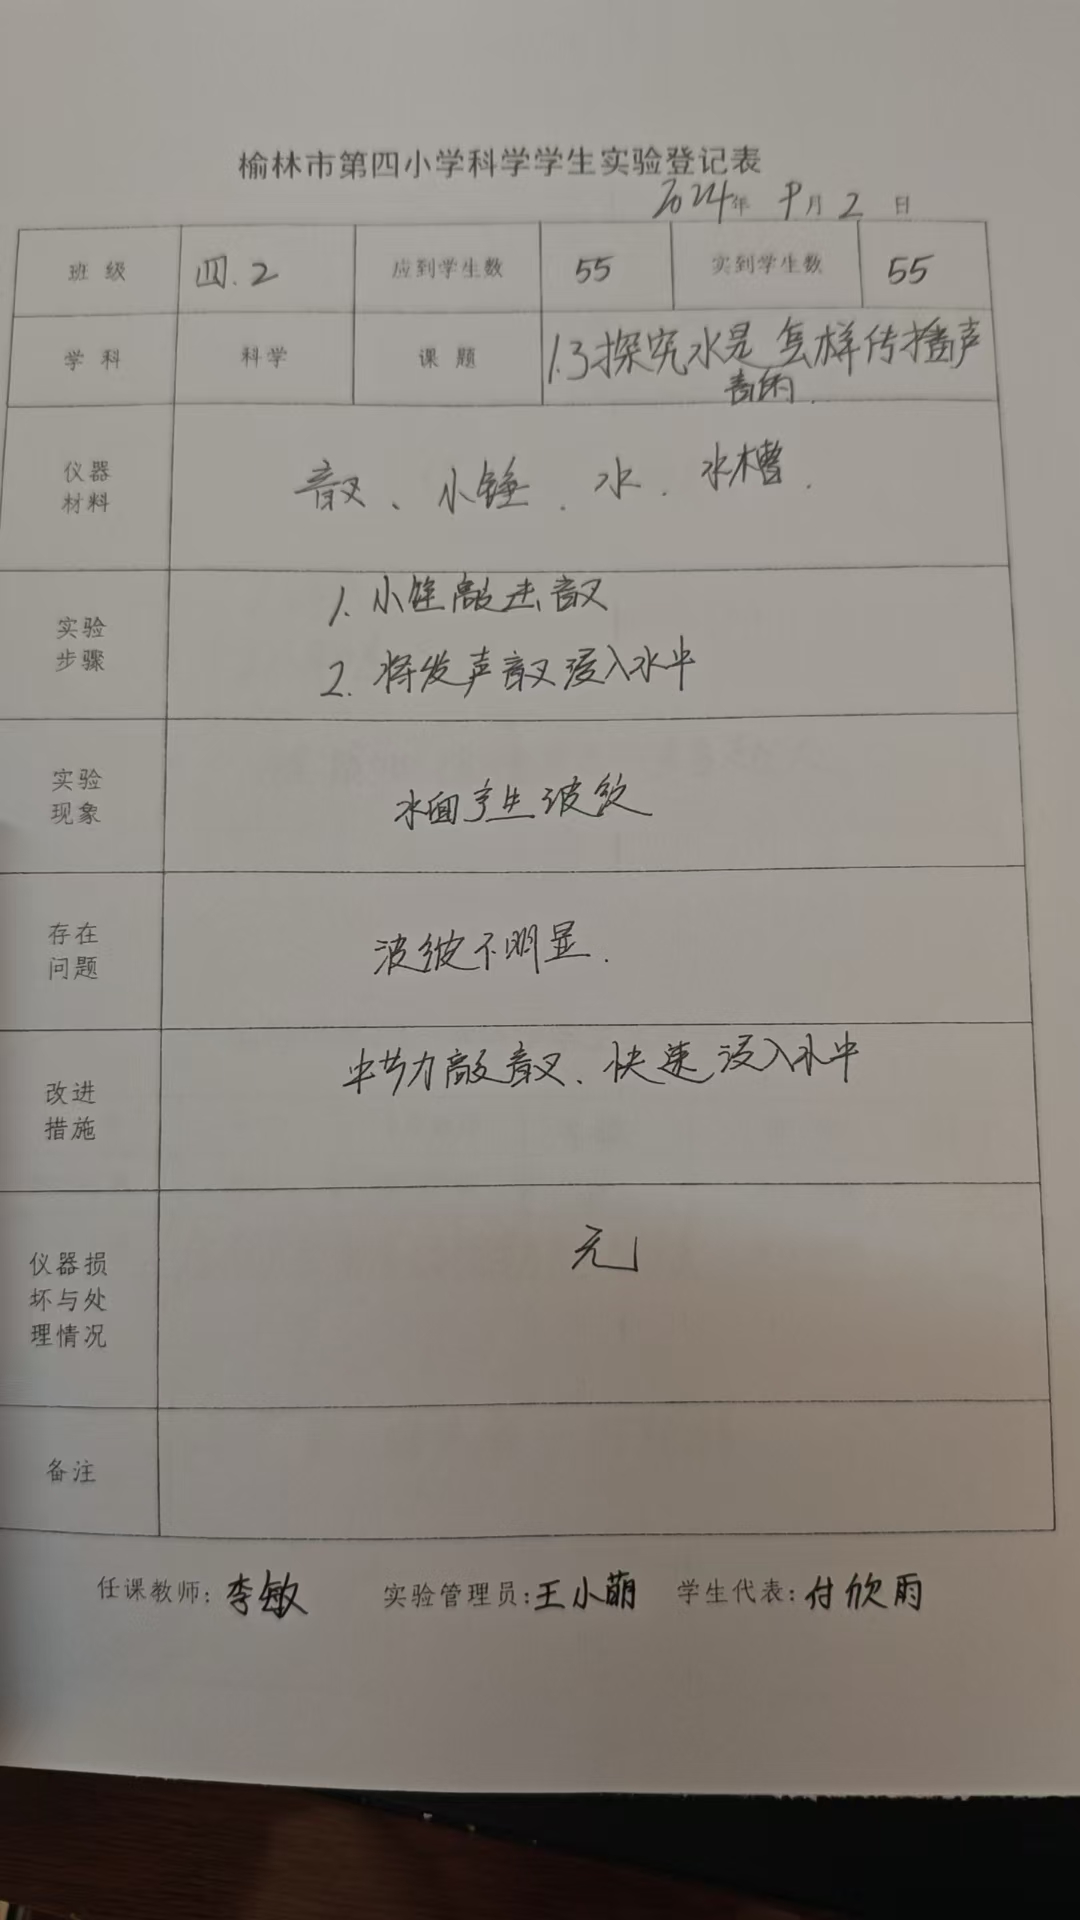 榆林市第四小学科学学生实验登记表
2024年 9月 2 日
班 级 四.2 应到学生数 55 实到学生数 55
学 科 科学 课 题 1.3探究水是怎样传播声
音的.
仪器
材料
音叉、小锤.水.水槽.
实验
步骤
1.小锤敲击音叉
2.将发声音叉浸入水中
实验
现象
水面产生波纹
存在
问题
波纹不明显.
改进
措施
力敲音叉、快速浸入水中
仪器损
坏与处
理情况
无
备注
任课教师:李敏 实验管理员:王小萌 学生代表:付欣雨